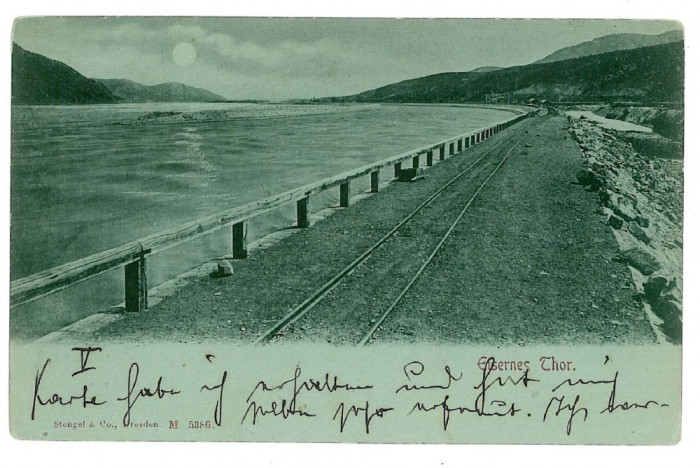 Eisernes Thor.
V
Karte habe ich erhalten und hat mich
selben sehr erfreut. Ich
Stengel & Co., Dresden M 5386.